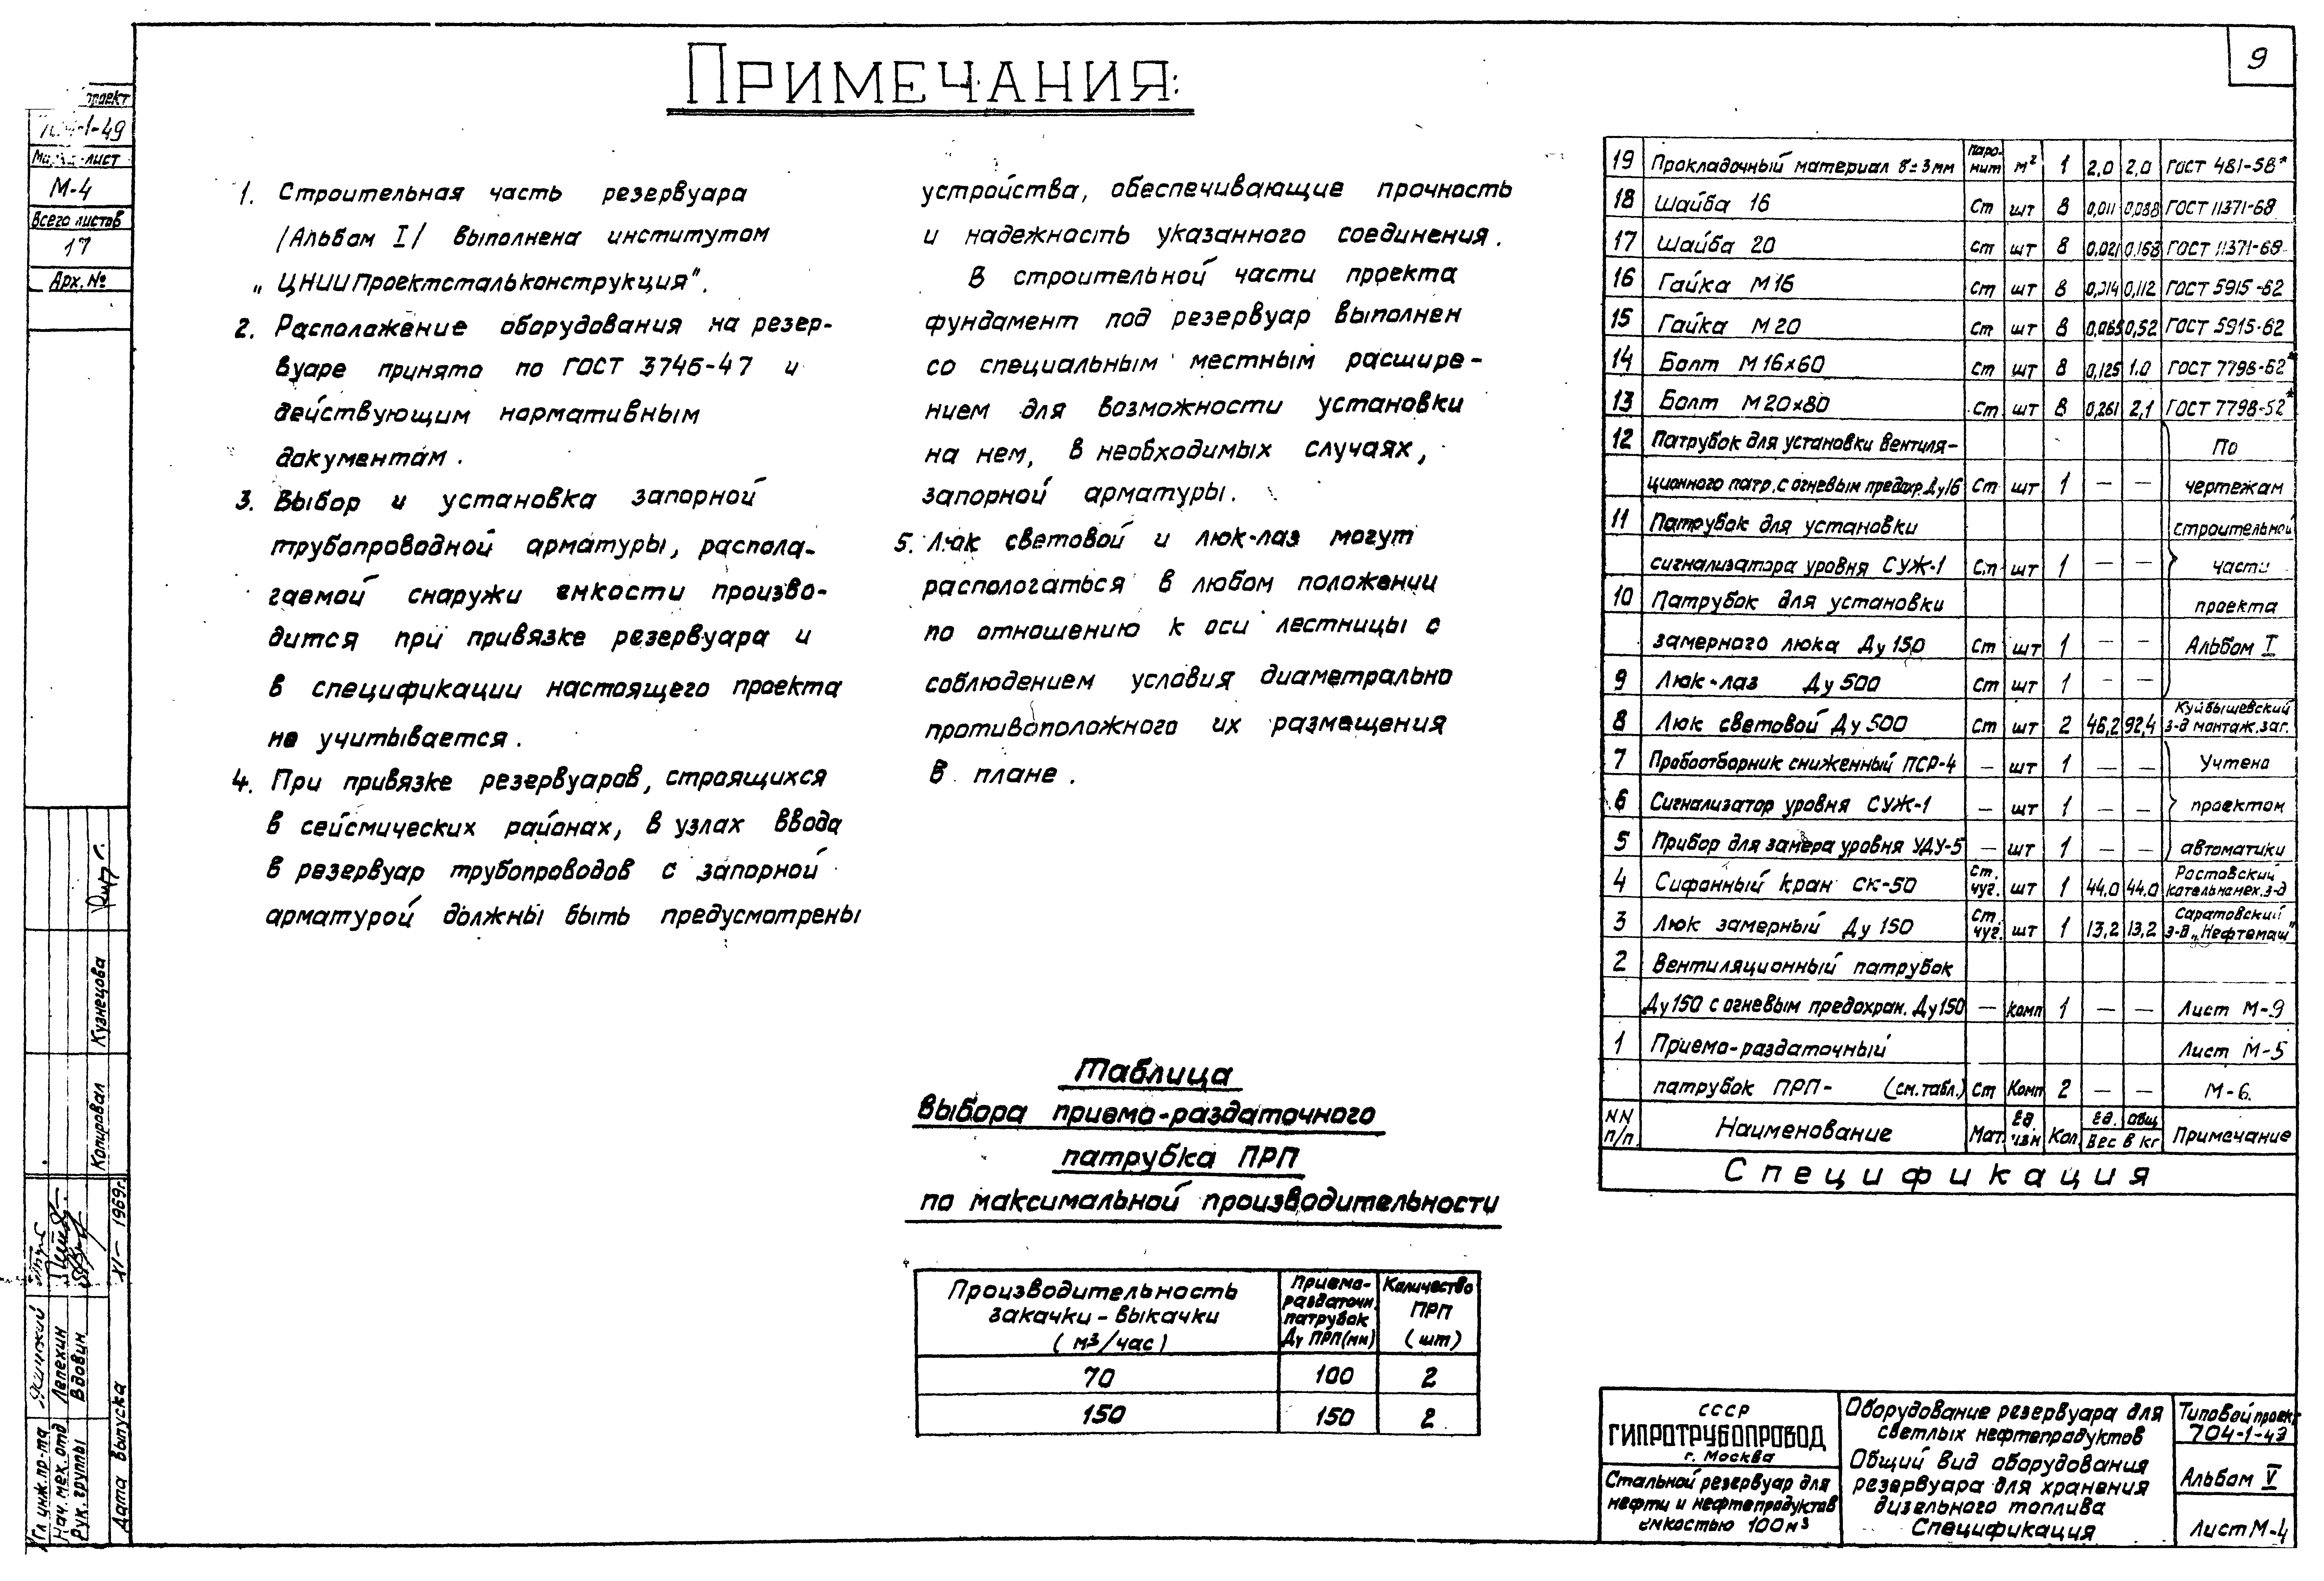 9
ПРИМЕЧАНИЯ:
1. Строительная часть резервуара
/Альбом I/ выполнена институтом
„ЦНИИПроектстальконструкция".
2. Расположение оборудования на резер-
вуаре принято по ГОСТ 3746-47 и
действующим нормативным
документам.
3. Выбор и установка запорной
трубопроводной арматуры, распола-
гаемой снаружи емкости произво-
дится при привязке резервуара и
в спецификации настоящего проекта
не учитывается.
4. При привязке резервуаров, строящихся
в сейсмических районах, в узлах ввода
в резервуар трубопроводов с запорной
арматурой должны быть предусмотрены
устройства, обеспечивающие прочность
и надежность указанного соединения.
В строительной части проекта
фундамент под резервуар выполнен
со специальным местным расшире-
нием для возможности установки
на нем, в необходимых случаях,
запорной арматуры.
5. Люк световой и люк-лаз могут
распологаться в любом положении
по отношению к оси лестницы с
соблюдением условия диаметрально
противоположного их размещения
в плане.
Таблица
выбора приемо-раздаточного
патрубка ПРП
по максимальной производительности
Производительность закачки-выкачки (м3/час) Приемо-раздаточн. патрубок Ду ПРП(мм) Количество ПРП (шт)
70 100 2
150 150 2
19 Прокладочный материал δ=3мм Паро-нит м² 1 2,0 2,0 ГОСТ 481-58*
18 Шайба 16 Ст шт 8 0,011 0,088 ГОСТ 11371-68
17 Шайба 20 Ст шт 8 0,021 0,168 ГОСТ 11371-68
16 Гайка М16 Ст шт 8 0,014 0,112 ГОСТ 5915-62
15 Гайка М20 Ст шт 8 0,065 0,52 ГОСТ 5915-62
14 Болт М16х60 Ст шт 8 0,125 1.0 ГОСТ 7798-62*
13 Болт М20х80 Ст шт 8 0,261 2,1 ГОСТ 7798-52*
12 Патрубок для установки вентиля- По
ционного патр. с огневым предохр. Ду16 Ст шт 1 — — чертежам
11 Патрубок для установки строительной
сигнализатора уровня СУЖ-1 Ст шт 1 — — части
10 Патрубок для установки проекта
замерного люка Ду 150 Ст шт 1 — — Альбом I
9 Люк-лаз Ду 500 Ст шт 1 — —
8 Люк световой Ду 500 Ст шт 2 46,2 92,4 Куйбышевский з-д монтаж. заг.
7 Пробоотборник сниженный ПСР-4 — шт 1 — — Учтено
6 Сигнализатор уровня СУЖ-1 — шт 1 — — проектом
5 Прибор для замера уровня УДУ-5 — шт 1 — — автоматики
4 Сифонный кран СК-50 Ст. чуг. шт 1 44,0 44,0 Ростовский котельномех. з-д
3 Люк замерный Ду 150 Ст. чуг. шт 1 13,2 13,2 Саратовский з-д „Нефтемаш"
2 Вентиляционный патрубок
Ду 150 с огневым предохран. Ду150 — комп 1 — — Лист М-9
1 Приемо-раздаточный Лист М-5
патрубок ПРП- (см. табл.) Ст Комп 2 — — М-6.
NN п/п. Наименование Мат. Ед. изм Кол. Ед. Общ Вес в кг Примечание
Спецификация
СССР
ГИПРОТРУБОПРОВОД
г. Москва
Стальной резервуар для
нефти и нефтепродуктов
емкостью 100м³
Оборудование резервуара для
светлых нефтепродуктов
Общий вид оборудования
резервуара для хранения
дизельного топлива
Спецификация
Типовой проект
704-1-49
Альбом V
Лист М-4
проект
704-1-49
Марка-лист
М-4
Всего листов
17
Арх. №
Копировал Кузнецова
Гл. инж. пр-та
Нач. мех. отд Лепехин
Рук. группы Вдовин
Дата выпуска XI- 1969г.